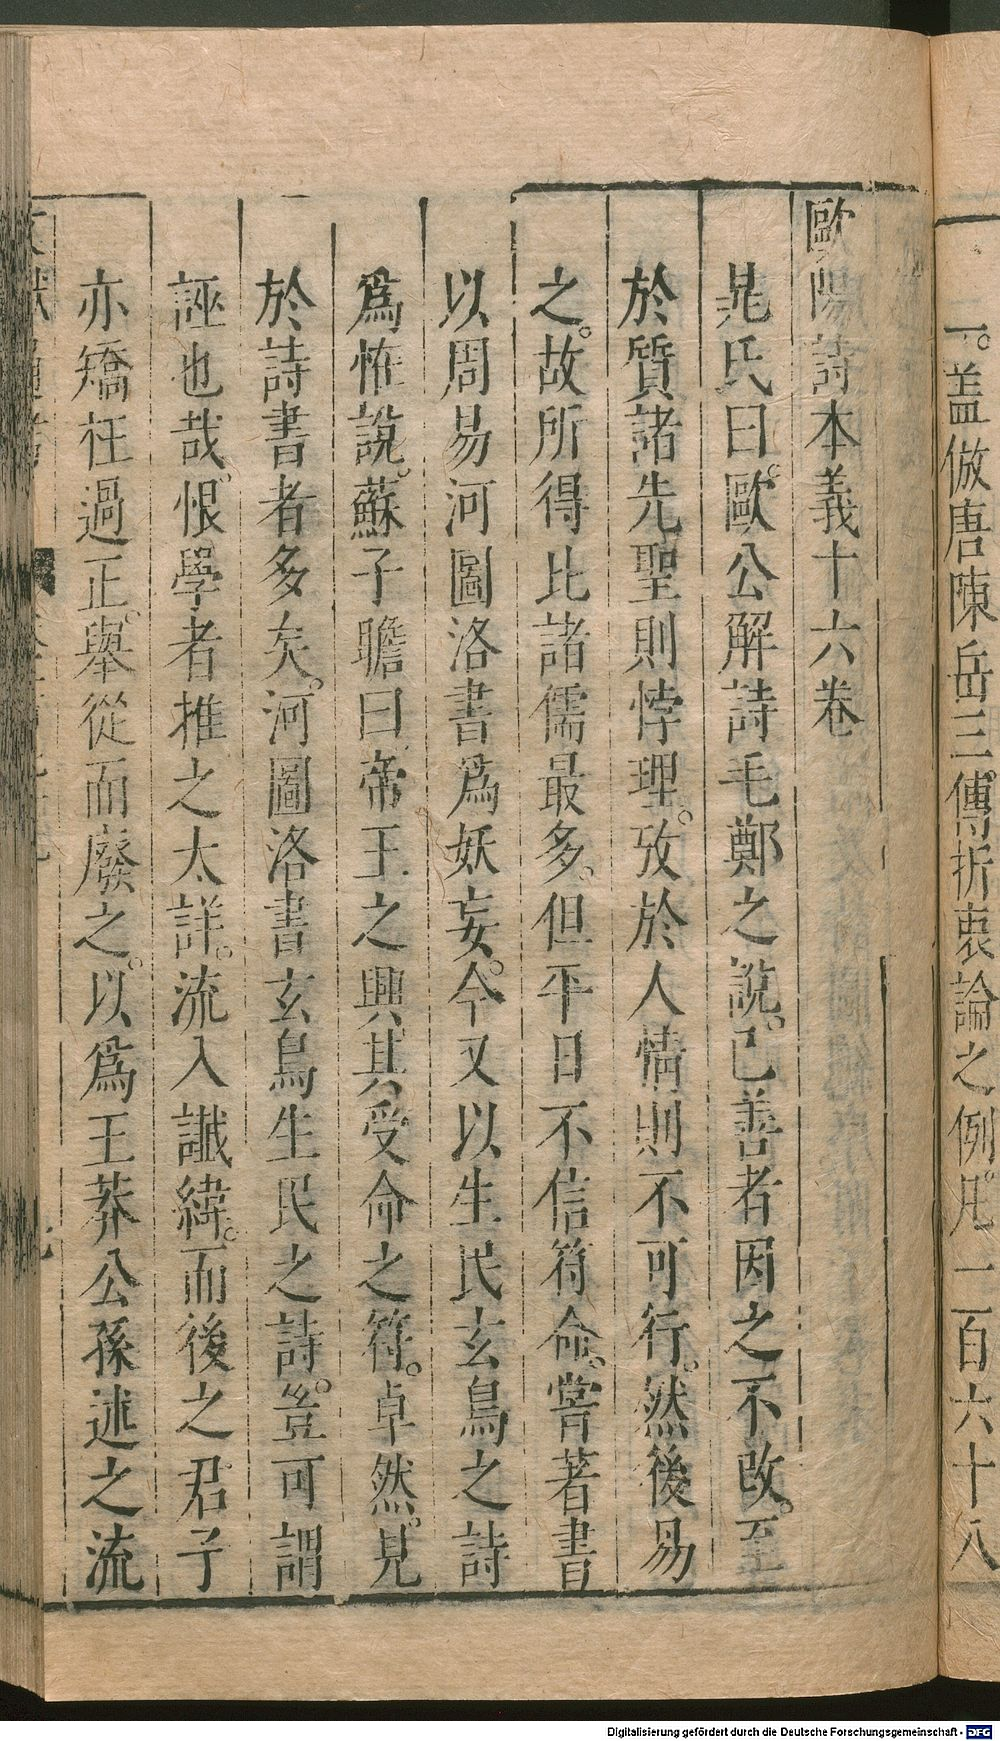 一。葢倣唐陳岳三傳折衷論之例。凡一百六十八
歐陽詩本義十六卷
晁氏曰。歐公解詩毛鄭之說。已善者因之不改。至
於質諸先聖則悖理。攷於人情則不可行。然後易
之。故所得比諸儒最多。但平日不信符命。嘗著書
以周易河圖洛書爲妖妄。今又以生民玄鳥之詩
爲恠說。蘇子瞻曰帝王之興其受命之符。卓然。見
於詩書者多矣。河圖洛書玄鳥生民之詩。豈可謂
誣也哉。恨學者推之太詳。流入讖緯。而後之君子
亦矯枉過正。舉從而廢之。以爲王莽公孫述之流
Digitalisierung gefördert durch die Deutsche Forschungsgemeinschaft - DFG